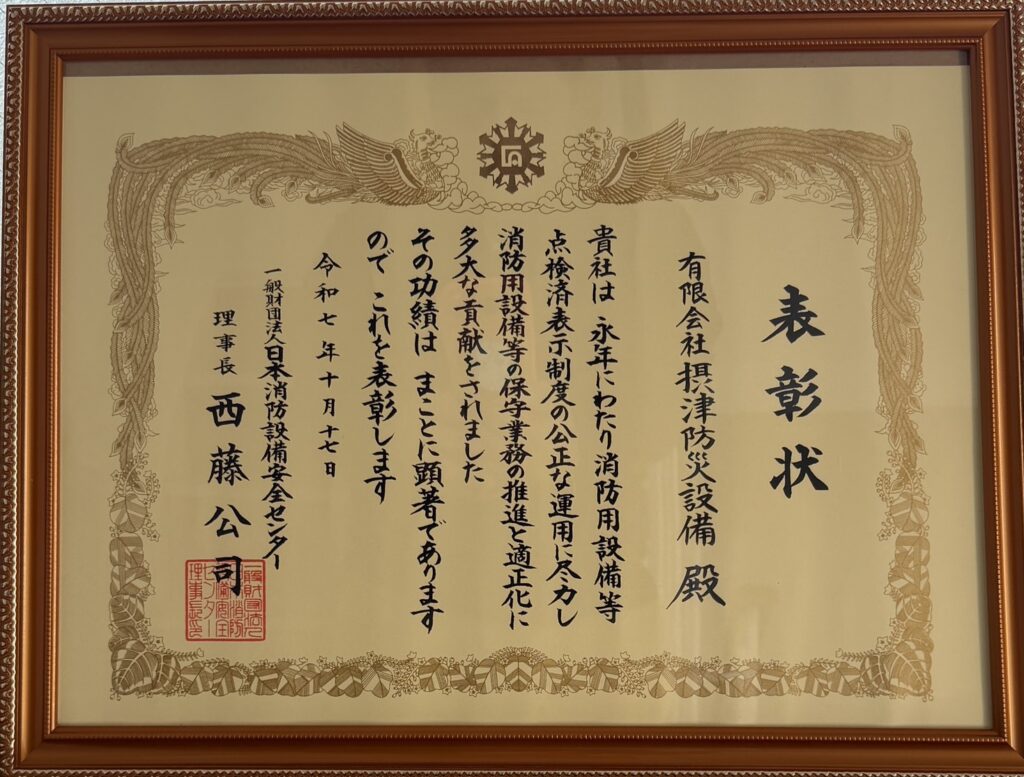 表彰状
有限会社摂津防災設備 殿
貴社は 永年にわたり消防用設備等
点検済表示制度の公正な運用に尽力し
消防用設備等の保守業務の推進と適正化に
多大な貢献をされました
その功績は まことに顕著であります
ので これを表彰します
令和七年十月十七日
一般財団法人日本消防設備安全センター
理事長 西藤公司